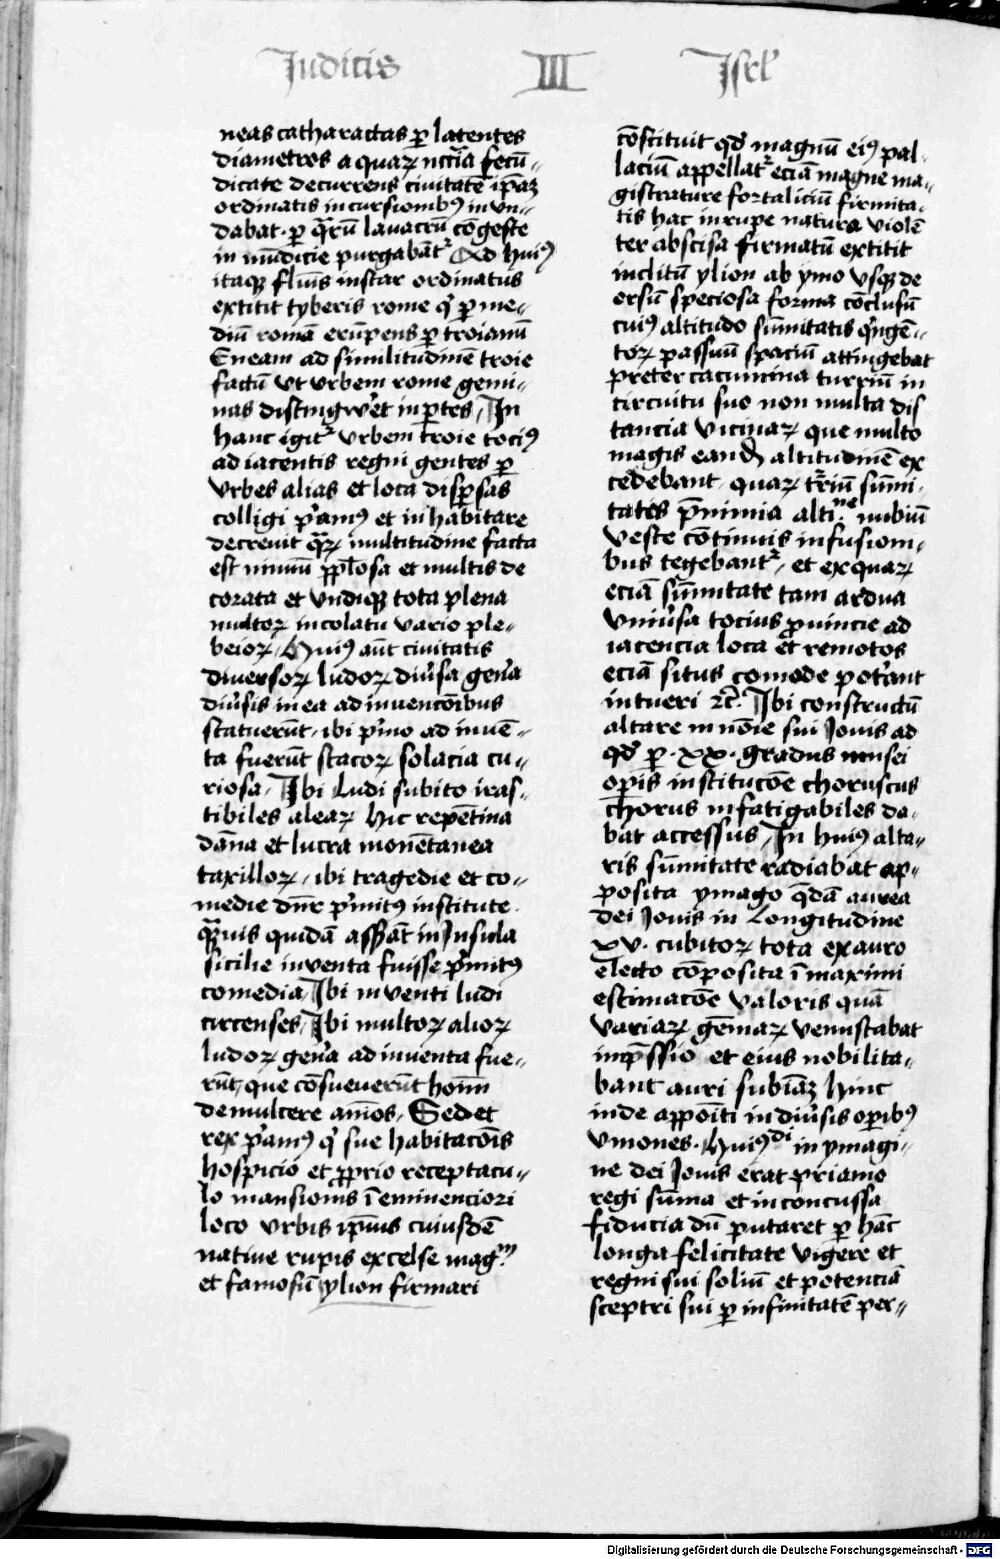 Judicis III Isrl̄
neas catharactas ꝑ latentes
diametros a quaꝝ nccīa fecū-
dicate decurrens ciuitatē ip̄aꝫ
ordinatis incursionibꝰ in vn-
dabat · ꝑ qͣrū lauacrū cōgeste
in mūdicie purgabāt᷑ Ad huiꝰ
itaqꝫ fluīs instar ordinatus
extitit tyberis rome qͥ ꝑ me-
diū romā erūpens ꝑ troianū
Eneam ad similitudinē troie
factū vt vrbem rome gemi-
nas distingw̄et in ꝑtes / In
hanc igit᷑ vrbem troie tociꝰ
ad iacentis regni gentes ꝑ
vrbes alias et loca disp̄sas
colligi pͥamꝰ et in habitare
decreuit qͣꝝ multitudine facta
est nimiū pp̄losa et multis de
corata et vndiqꝫ tota plena
multoꝝ incolatu vario ple-
beioꝝ / Huiꝰ aūt ciuitatis
diuersoꝝ ludoꝝ diūsa geūa
diūsis in ea ad inuencōibus
statuerūt · ibi pͥmo ad inuē-
ta fuerūt scacoꝝ solacia cu-
riosa / Ibi ludi subito iras-
tibiles aleaꝝ hic repētina
dāna et lucra monētanea
taxilloꝝ / ibi tragedie et co-
medie dn̄r pͥmitꝰ institute ·
qͣuis quidā assāt in Insula
sicilie inuenta fuisse pͥmitꝰ
comedia / Ibi inuenti ludi
circenses / Ibi multoꝝ alioꝝ
ludoꝝ geūa ad inuenta fue-
rūt / que cōsueuerūt hoīm
demulcere aīmos / Sed et
rex pͥamꝰ qͥ sue habitacōis
hospicio et ꝓprio receptacu-
lo mansionis ī eminenciori
loco vrbis ipīus cuiusdē
natiue rupis excelse magᵐ
et famosū ylion firmari
cōstituit qd̄ magnū eiꝰ pal-
laciū appellat᷑ eciā magne ma-
gistrature fortaliciū firmita-
tis hac in rupe natura violē
ter abscisa firmatū extitit
inclitū ylion ab ymo vsqꝫ de
orsū speciosa forma cōclusū
cuiꝰ altitudo sūmitatis qͥngē-
toꝝ passuū spaciū attingebat
preter cacumina turriū in
circuitu suo non multa dis
tancia vicinaꝝ que multo
magis eandē altitudinē ex
cedebant · quaꝝ tr̄iū sūmi-
tates p̄nimia alti.ⁿᵉ nubiū
veste cōtinuis infusioni-
bus tegebant᷑ · et ex quaꝝ
eciā sūmitate tam ardua
vniūsa tocius ꝓuincie ad
iacencia loca et remotos
eciā situs comode potͥant
intueri ꝛc̄ · Ibi constructū
altare in nōie sui Jouis ad
qd̄ ꝑ · xx · gradus musei
oꝑis institucōe choruscus
chorus infatigabiles da-
bāt accessus / In huiꝰ alta-
ris sūmitate radiabat ap-
posita ymago qͣdā aurea
dei Jouis in longitudine
xv · cubitoꝝ tota ex auro
electo cōposita ī maximi
estimacōe valoris quā
variaꝝ gēmaꝝ venustabat
inp̄ssio et eius nobilita-
bant auri subiāꝫ hinc
inde appōiti in diūsis oꝑibꝰ
vniones · Huiꝰᵈⁱ in ymagi-
ne dei Jouis erat priamo
regi sūma et inconcussa
fiducia dū putaret ꝑ hāc
longa felicitate vigere et
regni sui soliū et potenciā
sceptri sui ꝑ infinitatē per-
Digitalisierung gefördert durch die Deutsche Forschungsgemeinschaft - DFG